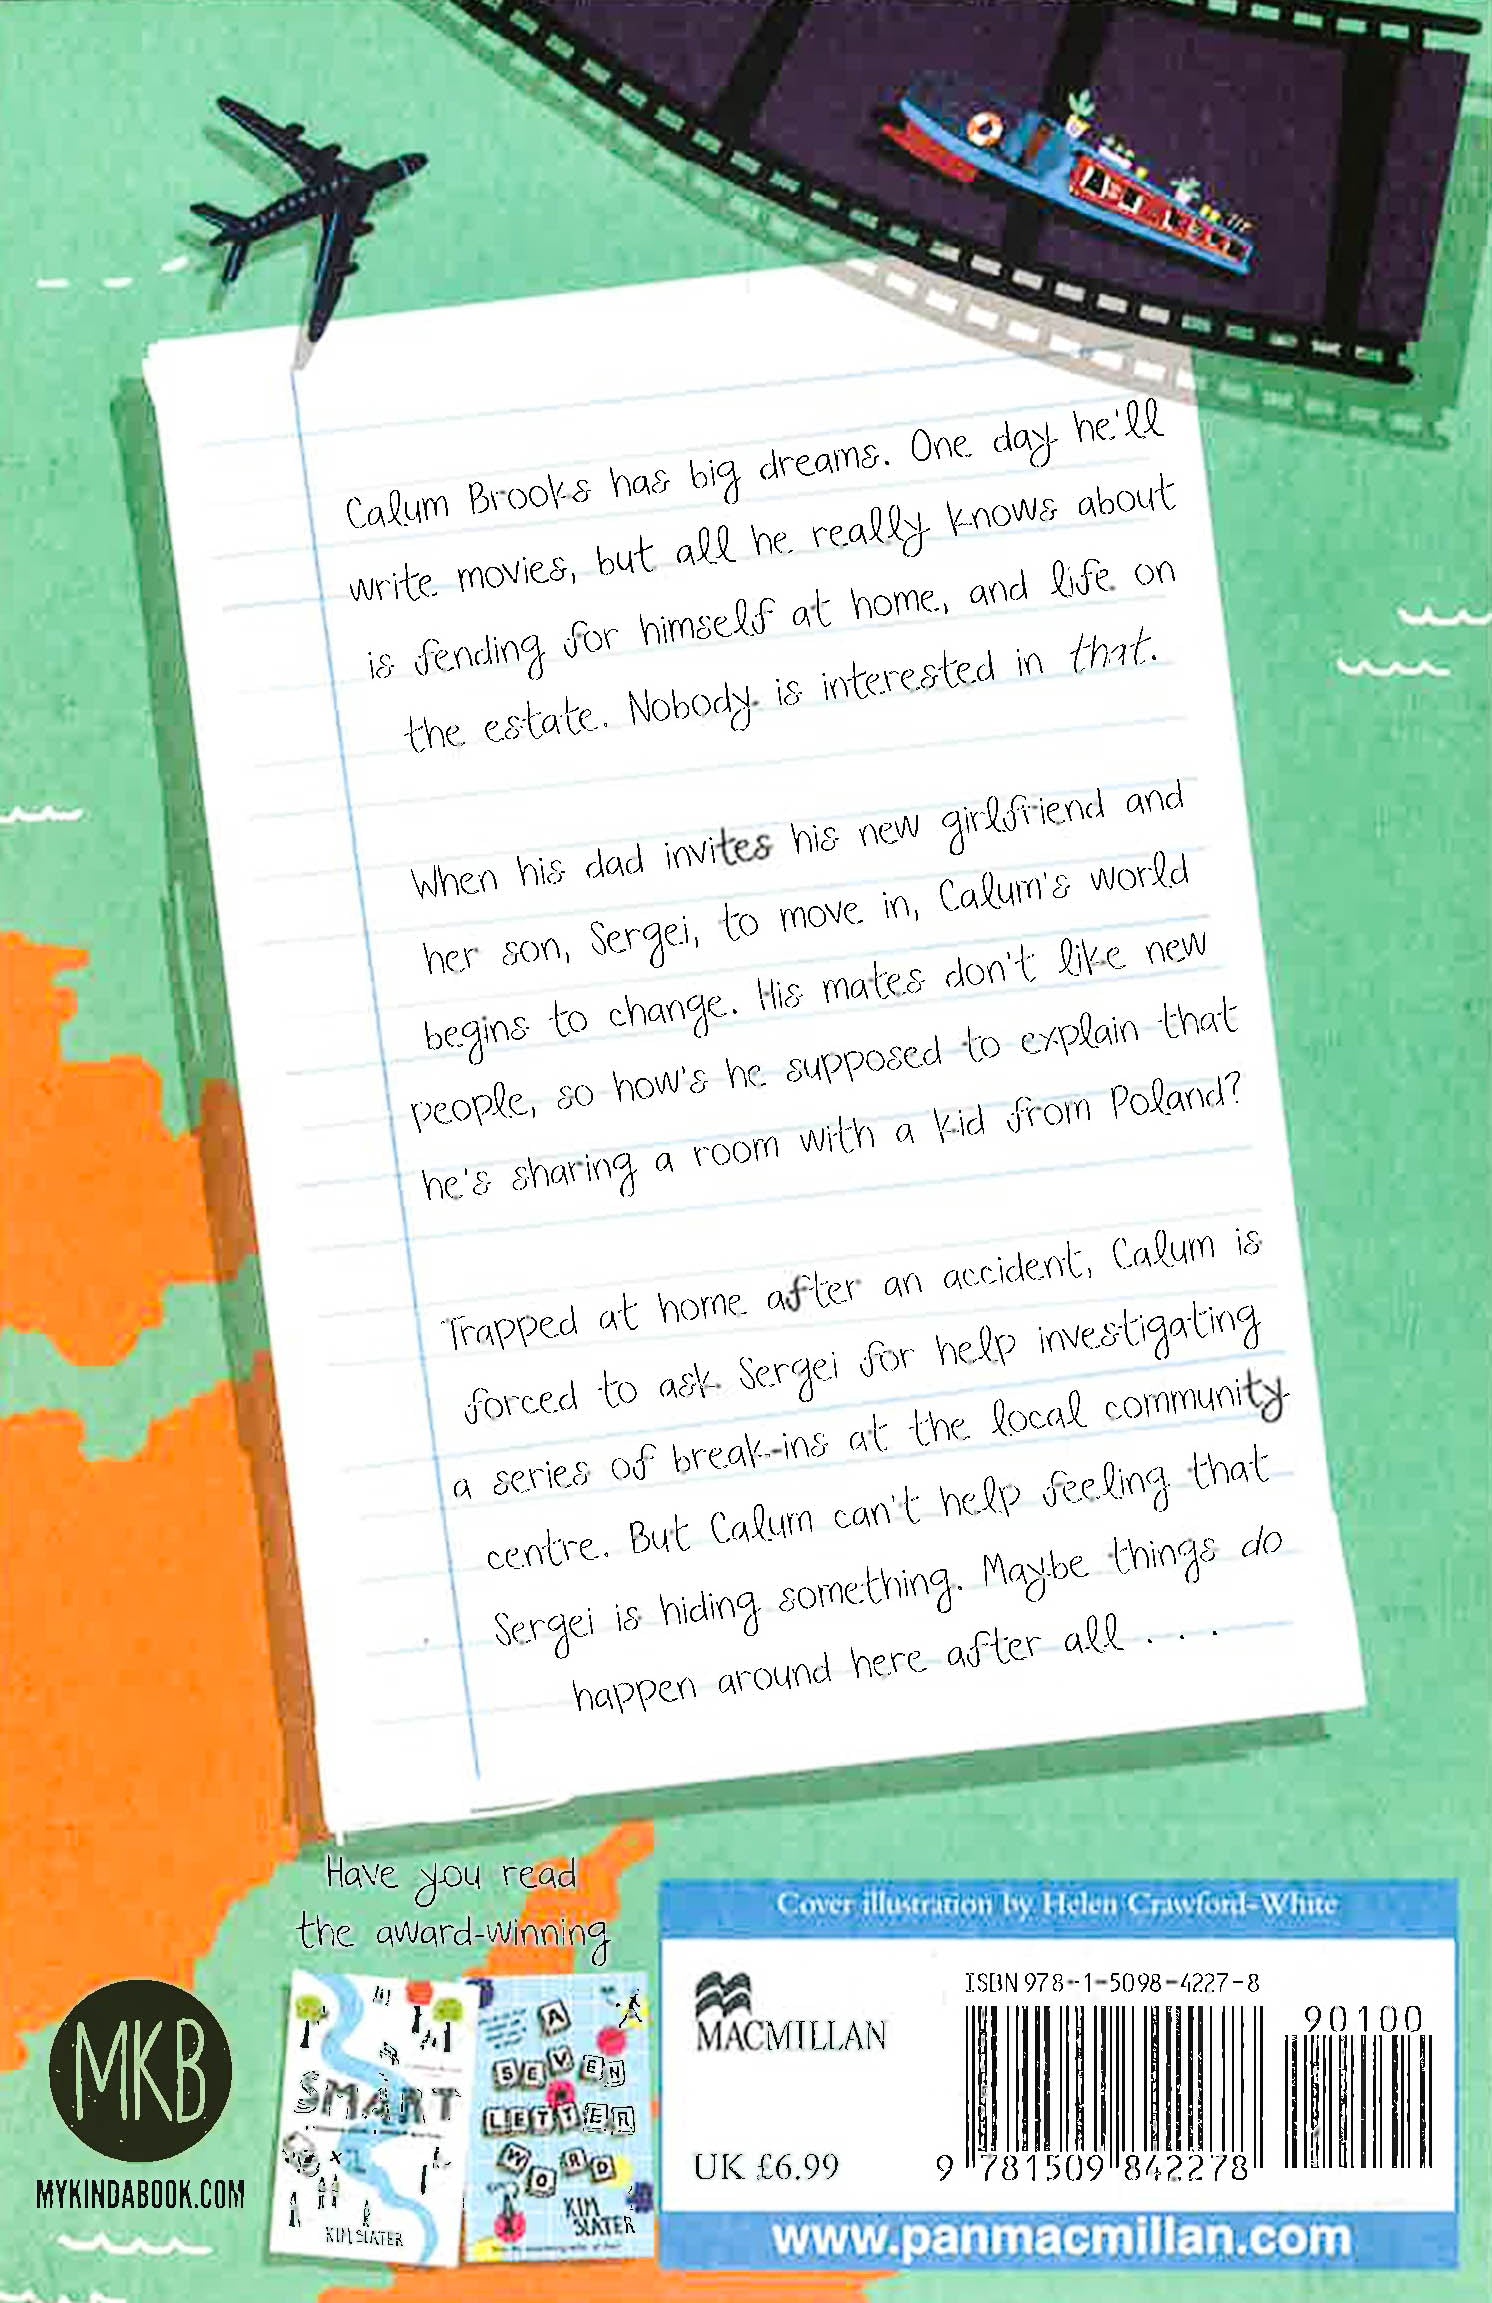 Calum Brooks has big dreams. One day he'll
write movies, but all he really knows about
is fending for himself at home, and life on
the estate. Nobody is interested in that.
When his dad invites his new girlfriend and
her son, Sergei, to move in, Calum's world
begins to change. His mates don't like new
people, so how's he supposed to explain that
he's sharing a room with a kid from Poland?
Trapped at home after an accident, Calum is
forced to ask Sergei for help investigating
a series of break-ins at the local community
centre. But Calum can't help feeling that
Sergei is hiding something. Maybe things do
happen around here after all . . .
Have you read
the award-winning
MKB
MYKINDABOOK.COM
SMART
KIM SLATER
A
SEVEN
LETTER
WORD
KIM
SLATER
Cover illustration by Helen Crawford-White
MACMILLAN
UK £6.99
ISBN 978-1-5098-4227-8
90100
9 781509 842278
www.panmacmillan.com